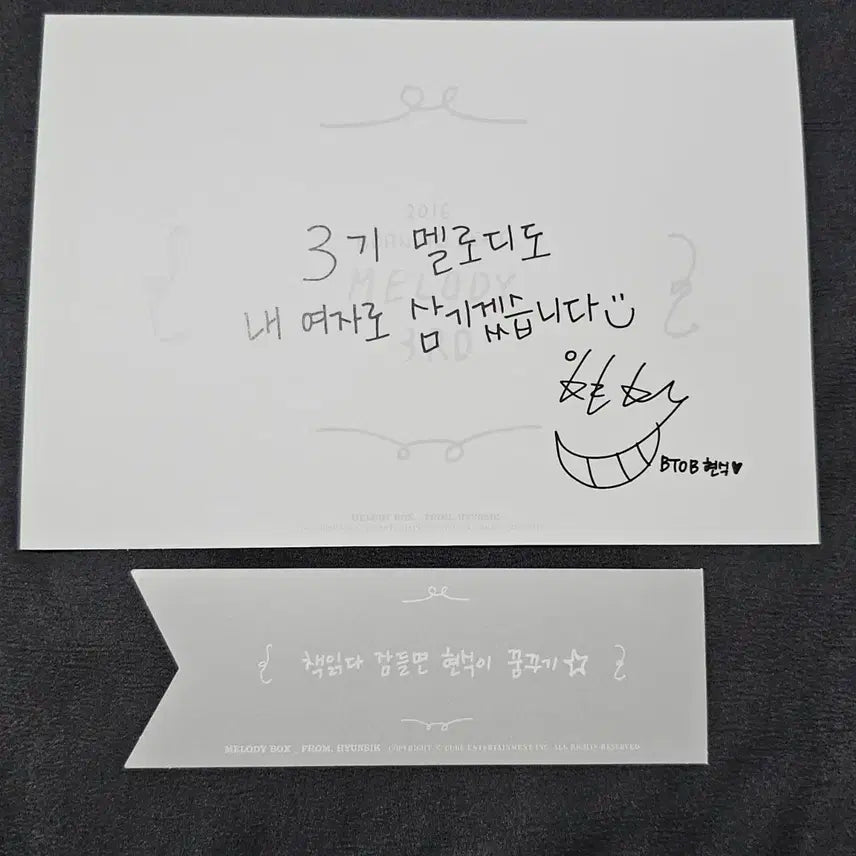 2016
MELODY
3RD
3기 멜로디도
내 여자로 삼기겠습니다
BTOB 현식♥
MELODY BOX _ FROM. HYUNSIK
책읽다 잠들면 현식이 꿈꾸기☆
MELODY BOX _ FROM. HYUNSIK COPYRIGHT © CUBE ENTERTAINMENT INC. ALL RIGHTS RESERVED